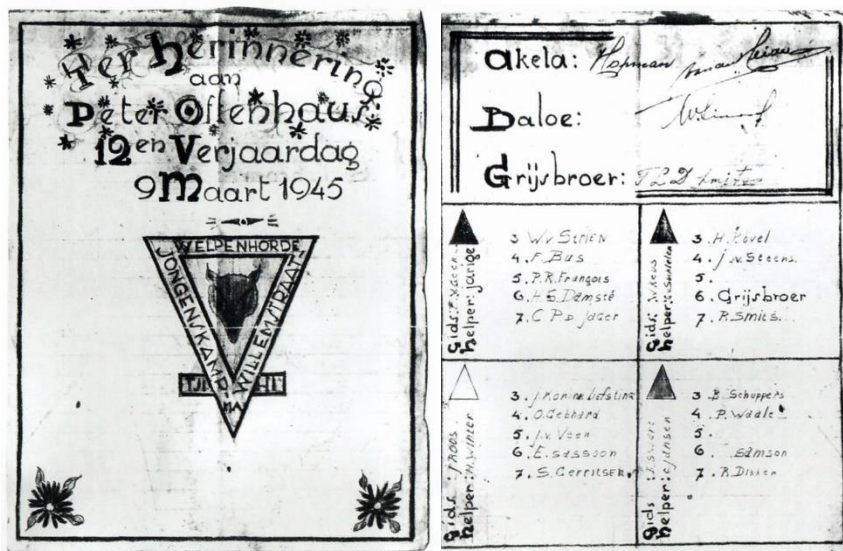 Ter herinnering
aan
Peter Offenhaus'
12en Verjaardag
9 Maart 1945
WELPENHORDE
JONGENSKAMP
WILLEMSTRAAT
TJI
Akela: Hopman
Baloe:
Grijsbroer:
Gids:
helper: jarige
3
4. F. Bus
5. P.R. François
6. H.S. Damsté
7. C. P. D. Jager
Gids:
helper:
3. H.
4. J. v. Steens
5.
6. Grijsbroer
7. R. Smits
Gids: J ROOS
helper: H. WINTER
3. J. Konink Liefsting
4. O. Gebhard
5. J. v. Veen
6. E. Sassoon
7. S. Gerritsen
gids:
helper: C. Jansen
3 B. Schuppers
4. P. Waale
5.
6 Samson
7. R. Dikken